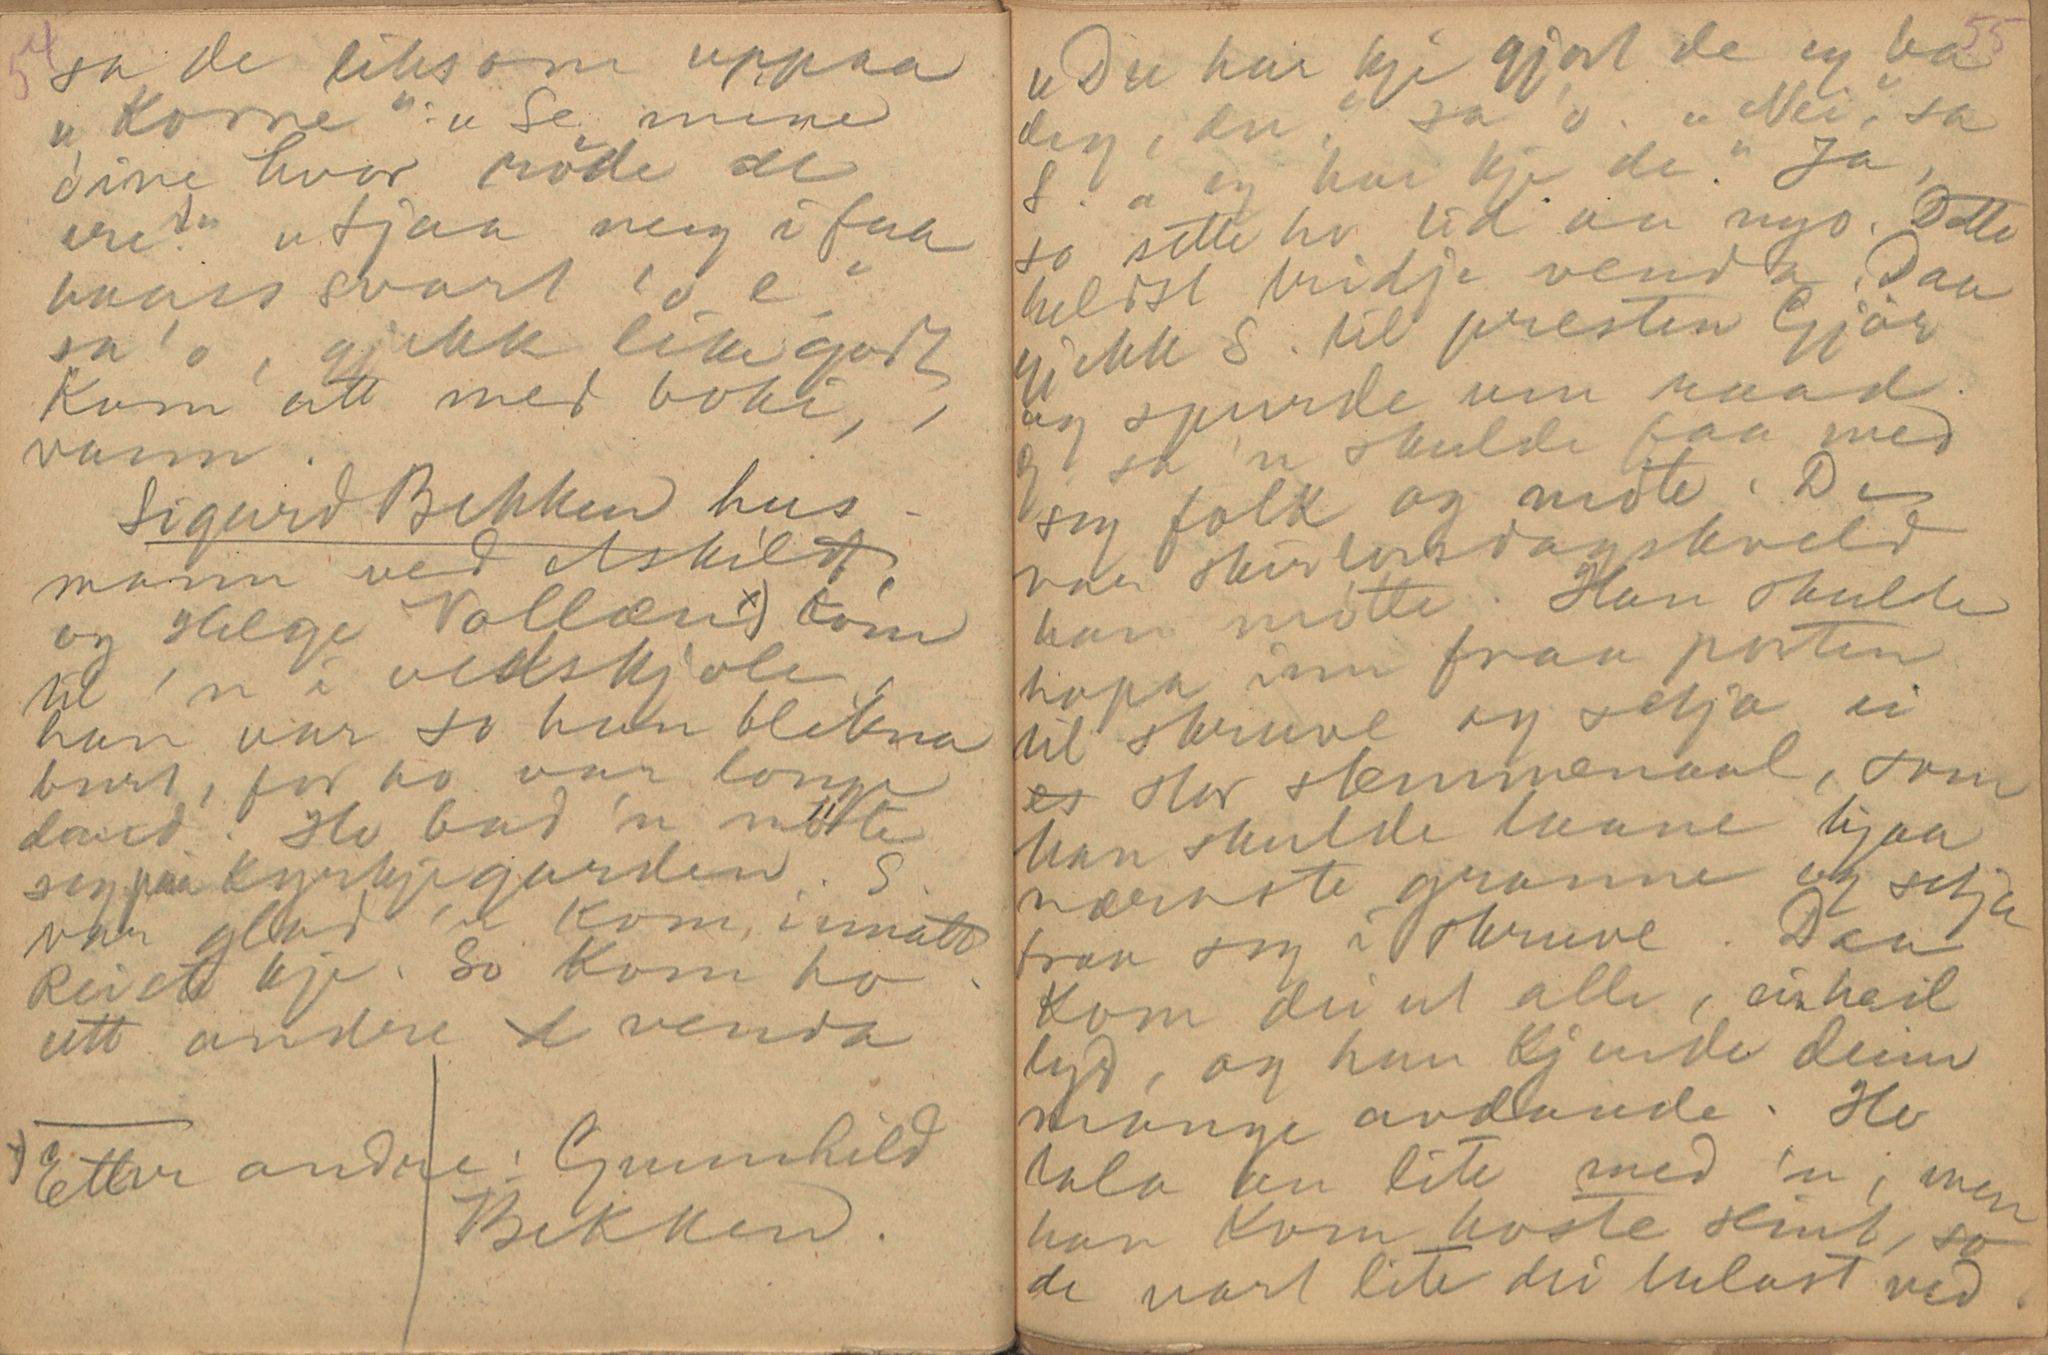 54
sa de liksom uppaa
„Korne": „Se mine
öine hvor röde de
ere!" „Sjaa meg i
svart 'o e"
sa 'o, gjekk like godt,
Kom att med boki,
vann.
Sigurd Bekken hus-
mann ved Askilt,
og Helge Vollæn x) kom
til 'n i vedskjole,
han var so han blikna
burt, for ho var longe
daud. Ho bad 'n möte
seg paa Kyrkjegarden. S.
var glad 'n kom innatt
kje. So kom ho
att andre venda
x) Etter andre: Gunnhild
Bekken.
55
„Du har kje gjort de eg ba
deg, du," sa 'o. „Nei," sa
S. „eg har kje de." Ja,
so sette ho tid aa nyo. Dette
heldst tridje venda. Daa
gjekk S. til presten Gjör
og spurde um raad.
G. sa 'n skulde faa med
seg folk og möte. De
var skirtorsdagskveld
han mötte. Han skulde
hopa inn fraa porten
til skruve og setja ei
stor stemmenaal, som
han skulde laane hjaa
nærmste granne og setja
fraa seg i skruve. Daa
Kom dei ut alle, ein heil
lyd, og han kjende deim
mange avdaude. Ho
tala an lite med 'n, men
han kom koste seint, so
de vart lite dei talast ved.